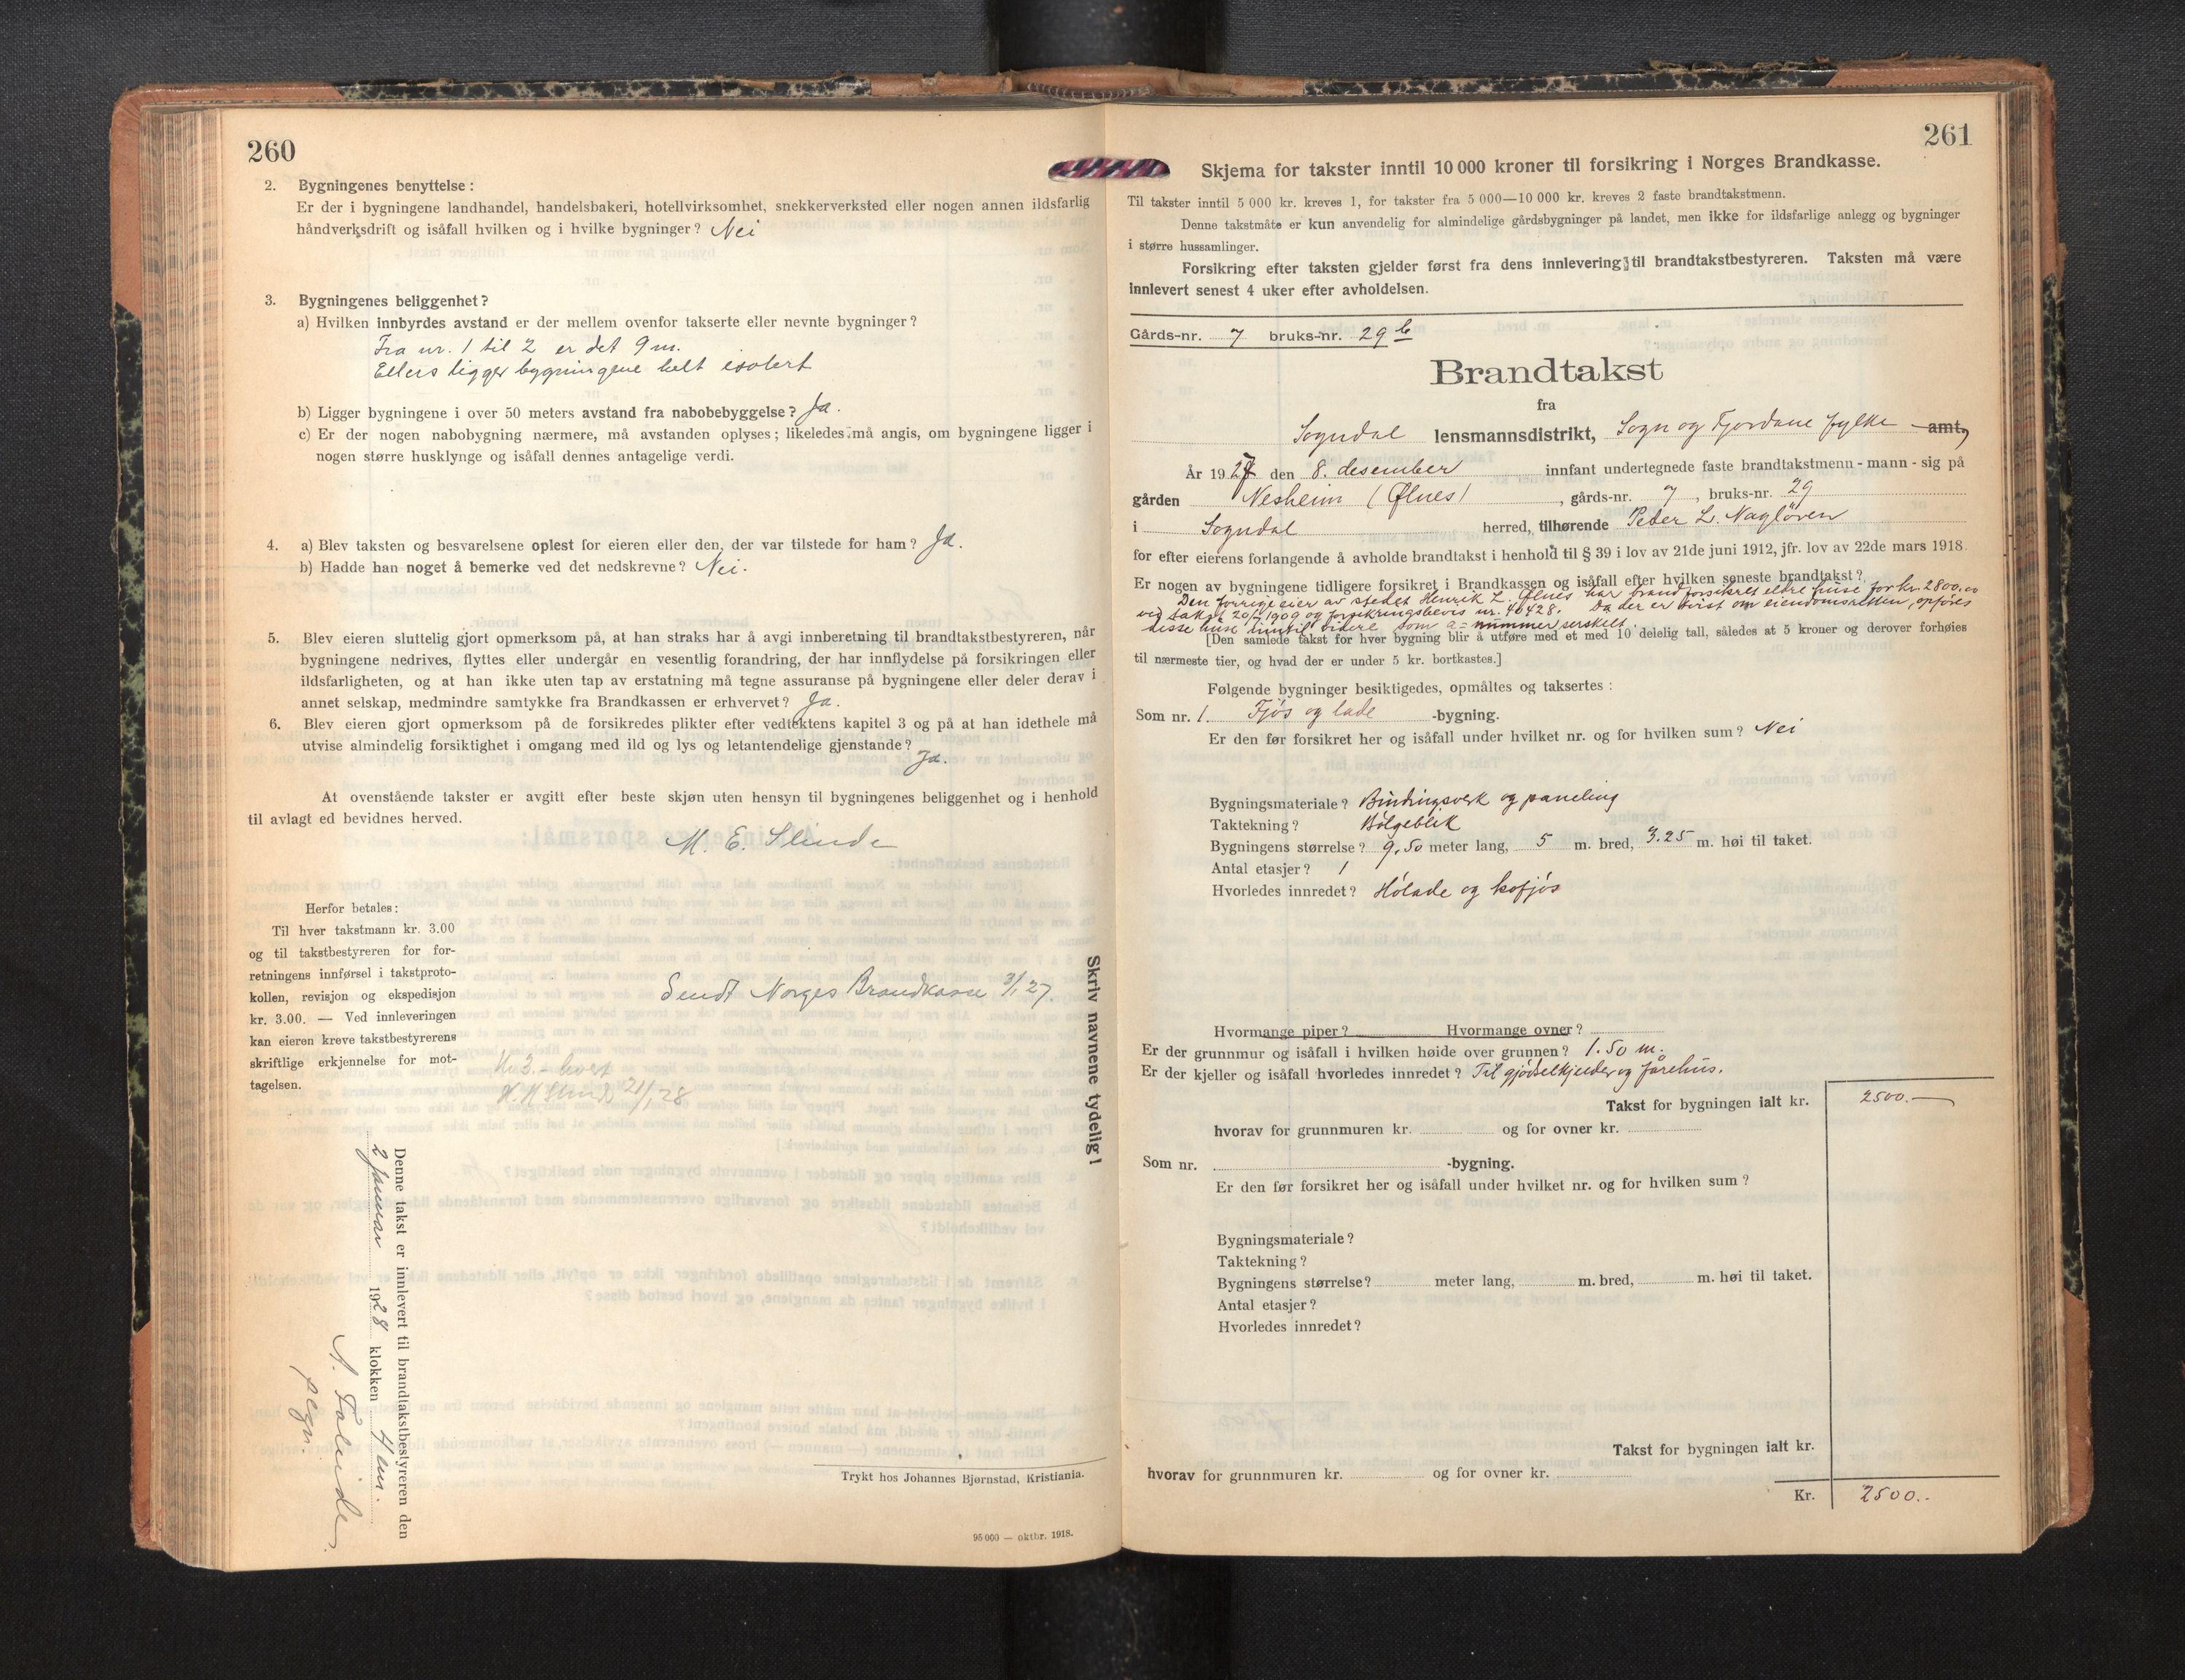 260
2. Bygningenes benyttelse :
Er der i bygningene landhandel, handelsbakeri, hotellvirksomhet, snekkerverksted eller nogen annen ildsfarlig
håndverksdrift og isåfall hvilken og i hvilke bygninger? Nei
3. Bygningenes beliggenhet?
a) Hvilken innbyrdes avstand er der mellem ovenfor takserte eller nevnte bygninger?
Fra nr. 1 til 2 er det 9 m.
Ellers ligger bygningene helt isolert
b) Ligger bygningene i over 50 meters avstand fra nabobebyggelse? Ja.
c) Er der nogen nabobygning nærmere, må avstanden oplyses; likeledes må angis, om bygningene ligger i
nogen større husklynge og isåfall dennes antagelige verdi.
4. a) Blev taksten og besvarelsene oplest for eieren eller den, der var tilstede for ham? Ja.
b) Hadde han noget å bemerke ved det nedskrevne? Nei.
5. Blev eieren sluttelig gjort opmerksom på, at han straks har å avgi innberetning til brandtakstbestyreren, når
bygningene nedrives, flyttes eller undergår en vesentlig forandring, der har innflydelse på forsikringen eller
ildsfarligheten, og at han ikke uten tap av erstatning må tegne assuranse på bygningene eller deler derav i
annet selskap, medmindre samtykke fra Brandkassen er erhvervet? Ja.
6. Blev eieren gjort opmerksom på de forsikredes plikter efter vedtektens kapitel 3 og på at han idethele må
utvise almindelig forsiktighet i omgang med ild og lys og letantendelige gjenstande?
Ja.
At ovenstående takster er avgitt efter beste skjøn uten hensyn til bygningenes beliggenhet og i henhold
til avlagt ed bevidnes herved.
M. E. Slinde
Herfor betales :
Til hver takstmann kr. 3.00
og til takstbestyreren for for-
retningens innførsel i takstproto-
kollen, revisjon og ekspedisjon
kr. 3.00. — Ved innleveringen
kan eieren kreve takstbestyrerens
skriftlige erkjennelse for mot-
tagelsen.
Sendt Norges Brandkasse 3/1 27.
Kr 3.-
21/1 28
Skriv navnene tydelig!
Denne takst er innlevert til brandtakstbestyreren den
2 januar 1928 klokken 4 em.
Trykt hos Johannes Bjørnstad, Kristiania.
95 000 — oktbr. 1918.
261
Skjema for takster inntil 10 000 kroner til forsikring i Norges Brandkasse.
Til takster inntil 5 000 kr. kreves 1, for takster fra 5 000—10 000 kr. kreves 2 faste brandtakstmenn.
Denne takstmåte er kun anvendelig for almindelige gårdsbygninger på landet, men ikke for ildsfarlige anlegg og bygninger
i større hussamlinger.
Forsikring efter taksten gjelder først fra dens innlevering til brandtakstbestyreren. Taksten må være
innlevert senest 4 uker efter avholdelsen.
Gårds-nr. 7 bruks-nr. 29 b
Brandtakst
fra
Sogndal lensmannsdistrikt, Sogn og Fjordane fylke amt,
År 1927 den 8. desember innfant undertegnede faste brandtakstmenn - mann - sig på
gården Nesheim (Ølnes) , gårds-nr. 7 , bruks-nr. 29
i Sogndal herred, tilhørende Peder L. Nagløren
for efter eierens forlangende å avholde brandtakst i henhold til § 39 i lov av 21de juni 1912, jfr. lov av 22de mars 1918
Er nogen av bygningene tidligere forsikret i Brandkassen og isåfall efter hvilken seneste brandtakst?
Den forrige eier av stedet Henrik L. Ølnes har brandforsikret eldre huse for kr. 2800,00
ved takst 20/7 1909 og forsikringsbevis nr. 40428. Da der er tvist om eiendomsretten, opføres
disse huse inntil videre som a = nummer serskelt.
[Den samlede takst for hver bygning blir å utføre med et med 10 delelig tall, således at 5 kroner og derover forhøies
til nærmeste tier, og hvad der er under 5 kr. bortkastes.]
Følgende bygninger besiktigedes, opmåltes og taksertes :
Som nr. 1. Fjøs og lade -bygning.
Er den før forsikret her og isåfall under hvilket nr. og for hvilken sum? Nei
Bygningsmateriale? Bindingsverk og paneling
Taktekning? Bølgeblik
Bygningens størrelse? 9.50 meter lang, 5 m. bred, 3.25 m. høi til taket.
Antal etasjer? 1
Hvorledes innredet? Hølade og kofjøs
Hvormange piper? Hvormange ovner?
Er der grunnmur og isåfall i hvilken høide over grunnen? 1.50 m.
Er der kjeller og isåfall hvorledes innredet? Til gjødselkjelder og fårehus.
Takst for bygningen ialt kr. 2500.—
hvorav for grunnmuren kr. og for ovner kr.
Som nr. -bygning.
Er den før forsikret her og isåfall under hvilket nr. og for hvilken sum?
Bygningsmateriale?
Taktekning?
Bygningens størrelse? meter lang, m. bred, m. høi til taket.
Antal etasjer?
Hvorledes innredet?
Takst for bygningen ialt kr.
hvorav for grunnmuren kr. og for ovner kr.
Kr. 2500..